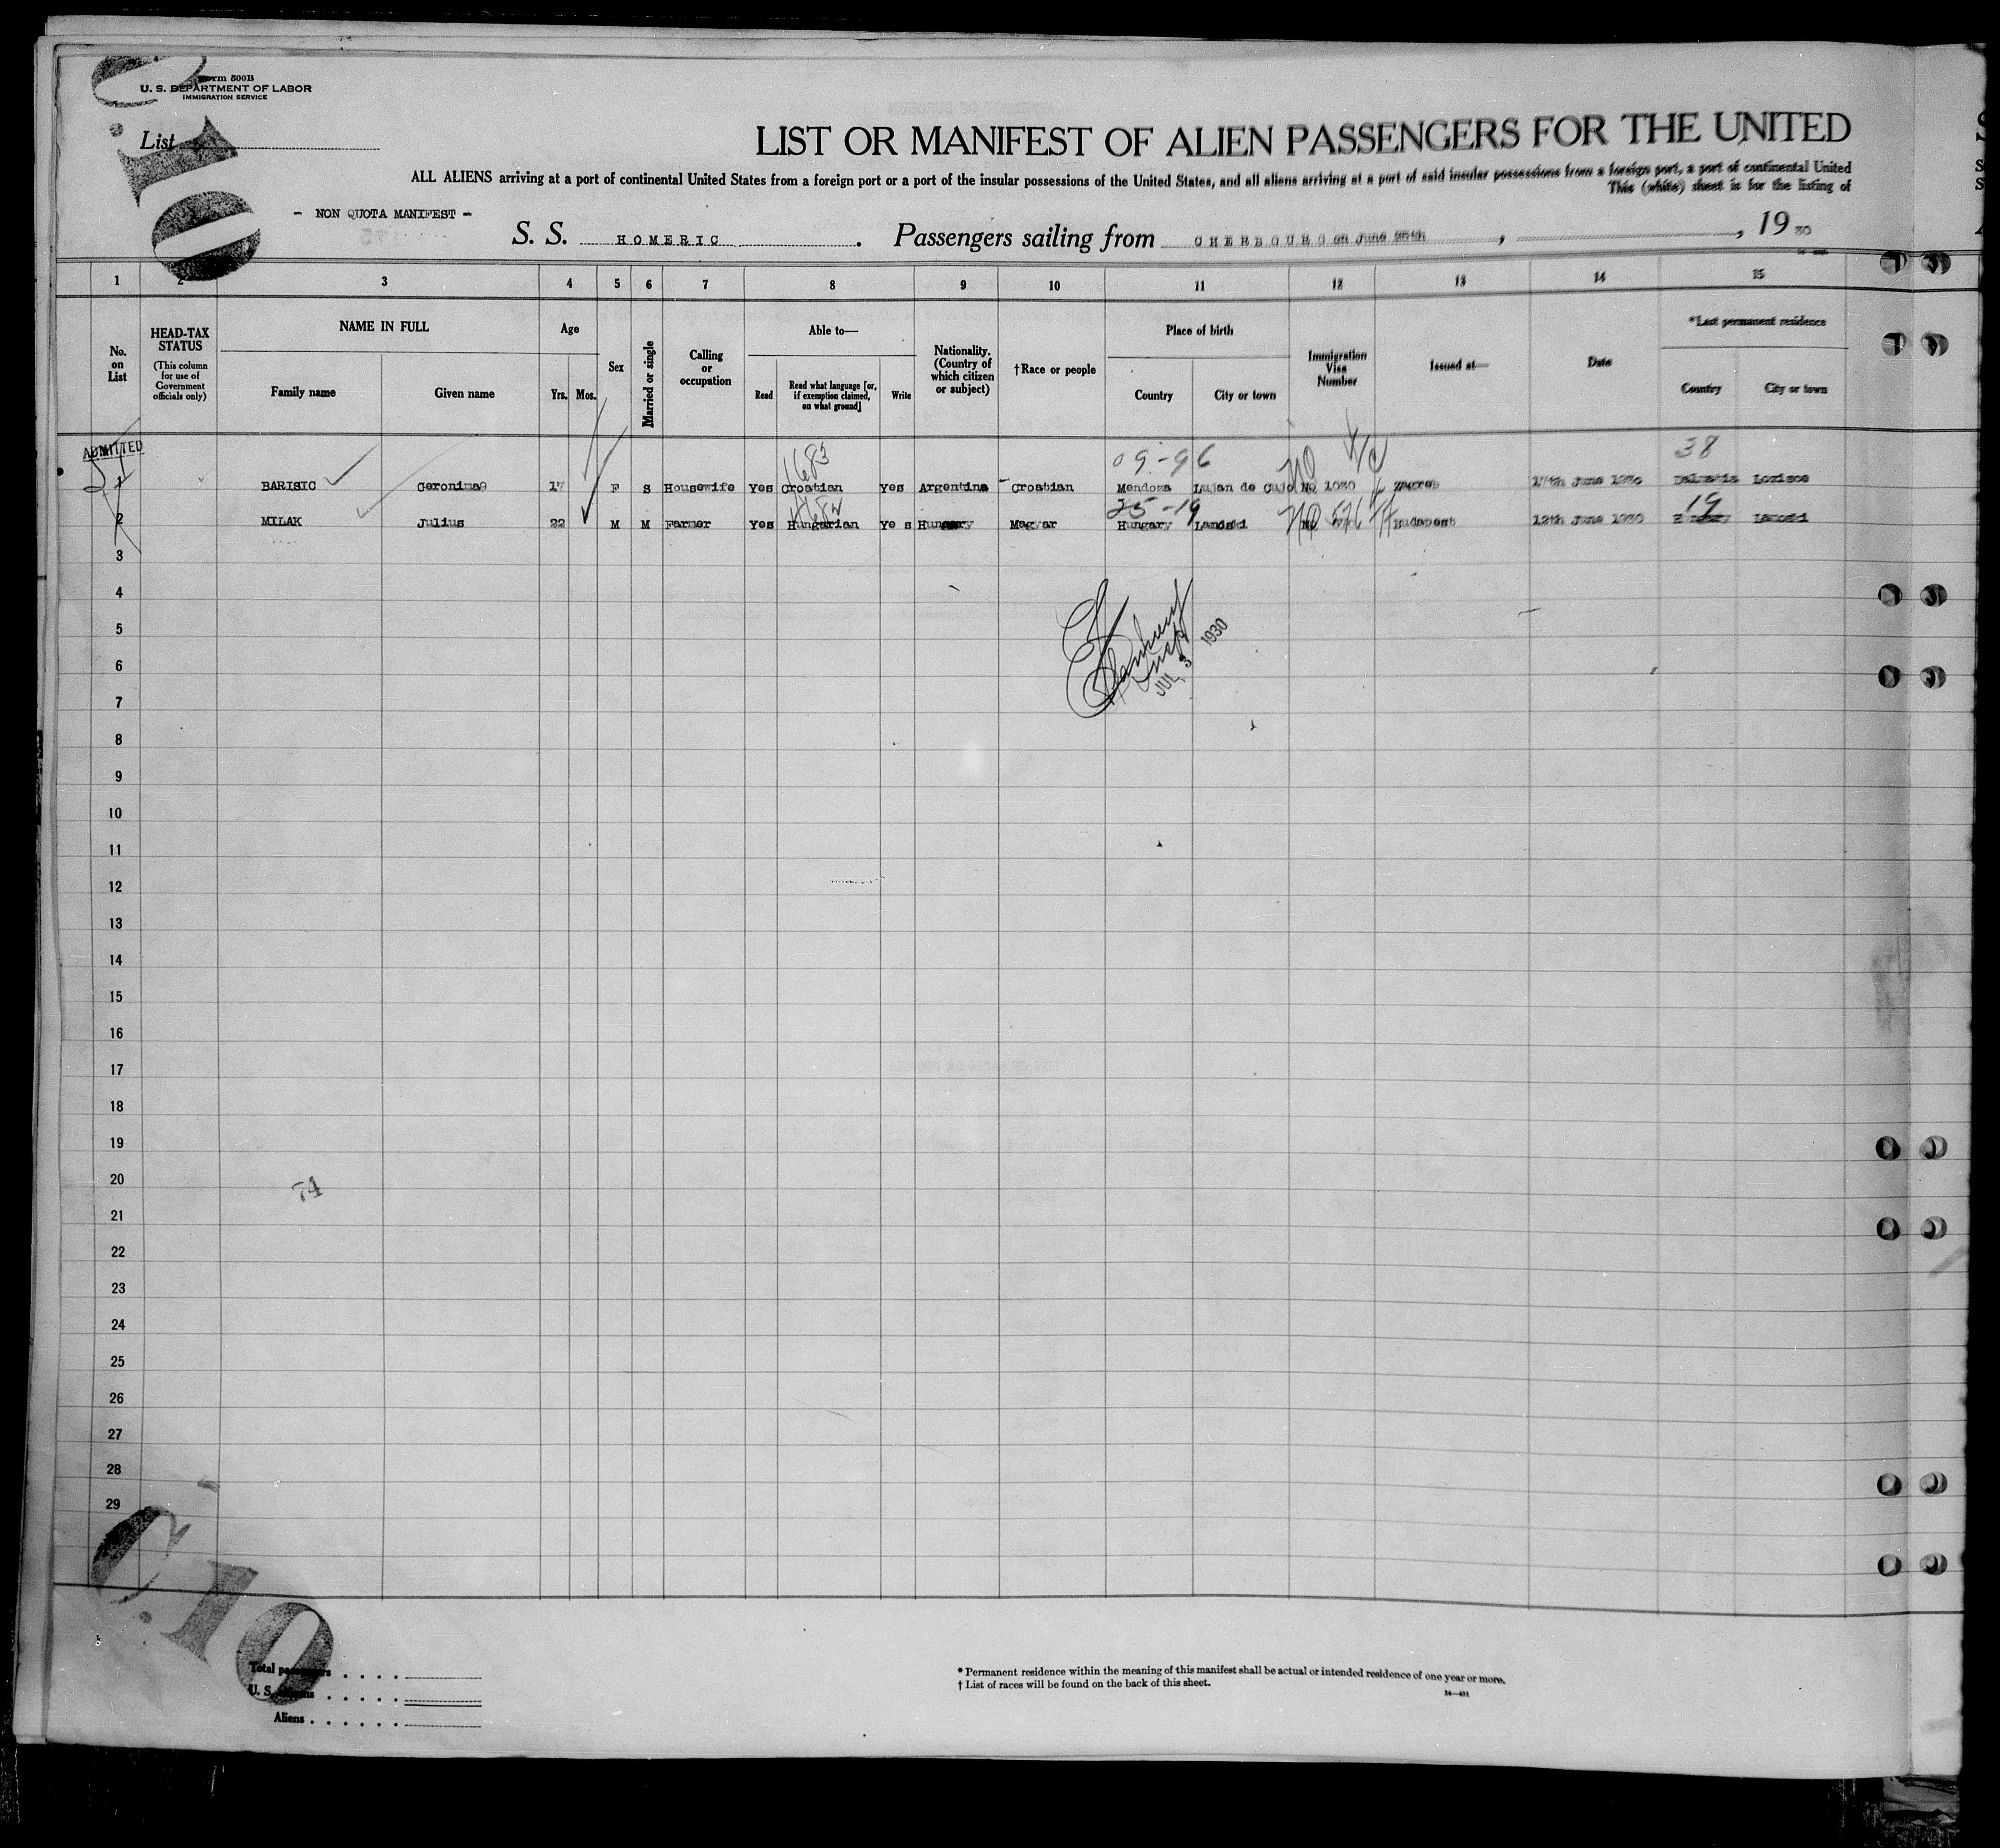 Form 500B
U. S. DEPARTMENT OF LABOR
IMMIGRATION SERVICE
List
LIST OR MANIFEST OF ALIEN PASSENGERS FOR THE UNITED
ALL ALIENS arriving at a port of continental United States from a foreign port or a port of the insular possessions of the United States, and all aliens arriving at a port of said insular possessions from a foreign port, a port of continental United
This (white) sheet is for the listing of
- NON QUOTA MANIFEST -
S. S. HOMERIC. Passengers sailing from CHERBOURG on June 25th, , 1930
1 2 3 4 5 6 7 8 9 10 11 12 13 14 15
No. on List
HEAD-TAX STATUS
(This column for use of Government officials only)
NAME IN FULL
Family name
Given name
Age
Yrs. Mos.
Sex
Married or single
Calling or occupation
Able to—
Read
Read what language [or, if exemption claimed, on what ground]
Write
Nationality. (Country of which citizen or subject)
†Race or people
Place of birth
Country
City or town
Immigration Visa Number
Issued at—
Date
*Last permanent residence
Country
City or town
ADMITTED
1683 09-96 38
1 BARISIC Geronima 17 F S Housewife Yes Croatian Yes Argentina Croatian Mendoza Lujan de Cujo NQ 1030 Zagreb 17th June 1930 Dalmatia Lozisce
25-19 19
2 MILAK Julius 22 M M Farmer Yes Hungarian Yes Hungary Magyar Hungary NQ Budapest 12th June 1930 Hungary
3
4
5
JUL 3 1930
6
7
8
9
10
11
12
13
14
15
16
17
18
19
20
74
21
22
23
24
25
26
27
28
29
C.10
Total passengers
U. S. citizens
Aliens
* Permanent residence within the meaning of this manifest shall be actual or intended residence of one year or more.
† List of races will be found on the back of this sheet.
14—431